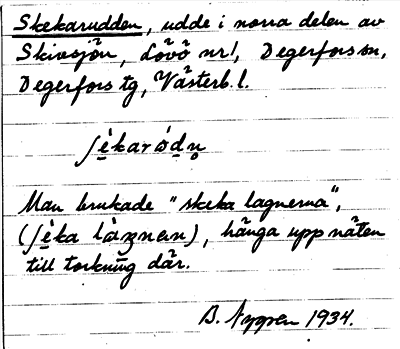 Skekarudden, udde i norra delen av
Skivsjön, Lövö nr 1, Degerfors sn,
Degerfors tg, Västerb. l.
ʃèkaró̀dn̥
Man brukade "skeka lagnerna",
(ʃèka làgnan), hänga upp näten
till torkning där.
B. Nygren 1934.